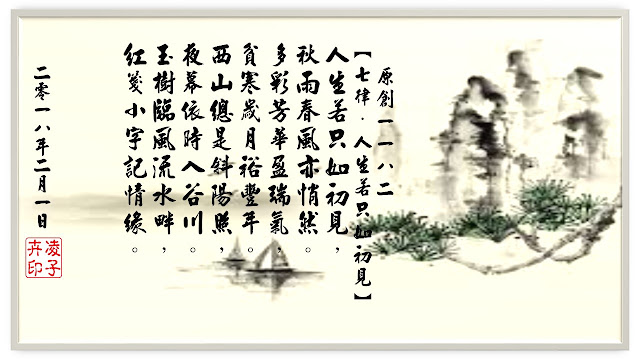 原創一一八二
【七律·人生若只如初見】
人生若只如初見，
秋雨春風亦悄然。
多彩芳華盈瑞氣，
貧寒歲月裕豐年。
西山總是斜陽照，
夜幕依時入谷川。
玉樹臨風流水畔，
紅箋小字記情緣。
二零一八年二月一日
凌子
卉印